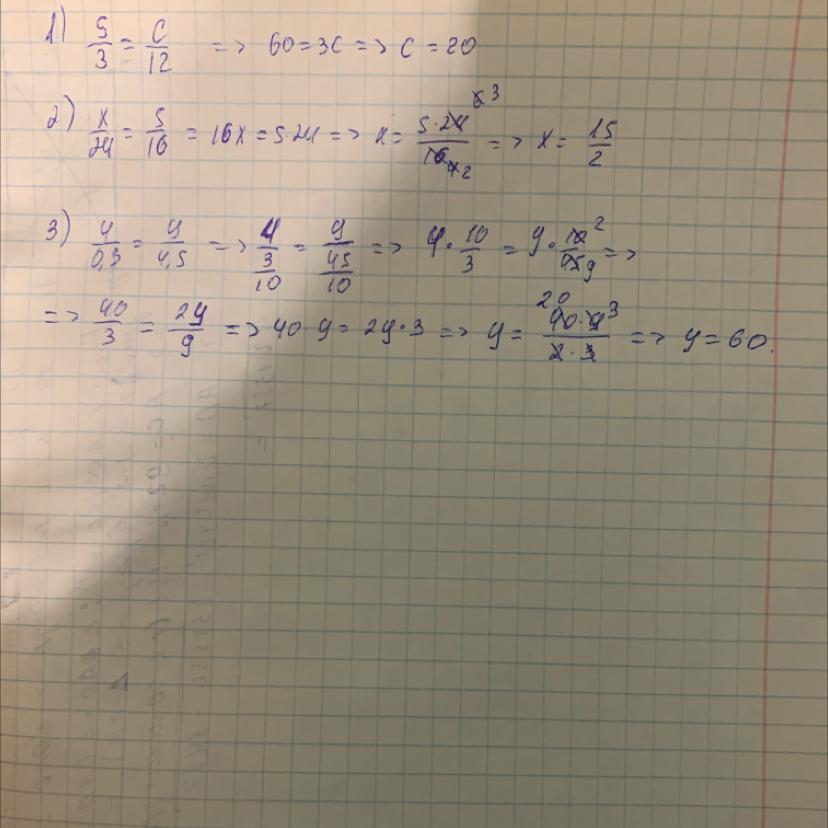 1) 5/3 = c/12 => 60=3c => c=20
2) x/24 = 5/16 = 16x=5·24 => x= 5·24 3/16 2 => x= 15/2
3) 4/0,3 = y/4,5 => 4/(3/10) = y/(45/10) => 4·10/3 = y·10 2/45 9 =>
=> 40/3 = 2y/9 => 40·9=2y·3 => y= 20 40·9 3/2·3 => y=60.